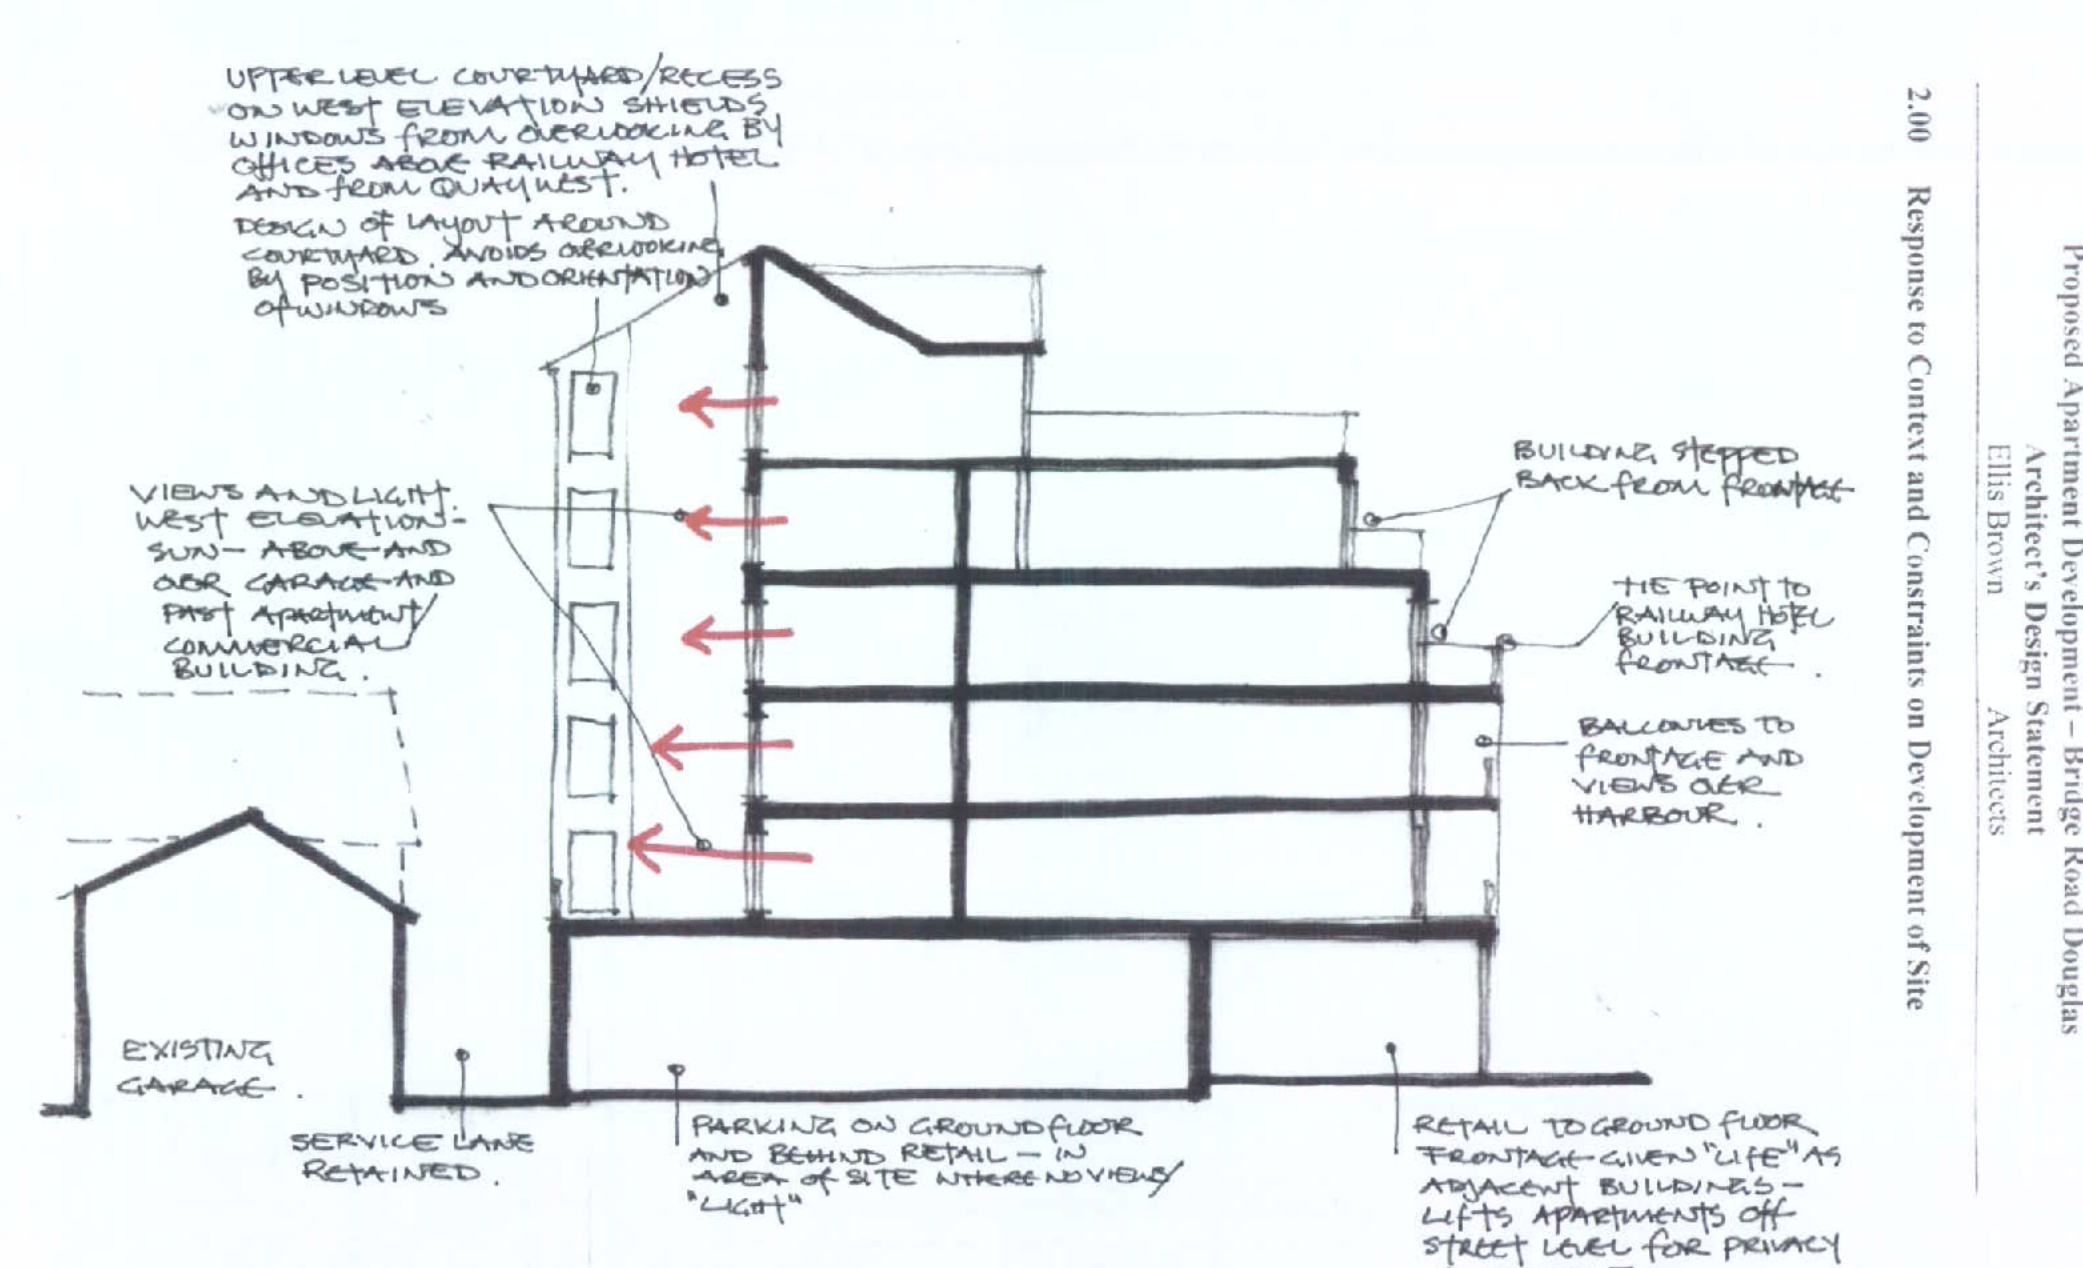 UPPER LEVEL COURTYARD/RECESS
ON WEST ELEVATION SHIELDS
WINDOWS FROM OVERLOOKING BY
OFFICES ABOVE RAILWAY HOTEL
AND FROM QUAY WEST.
DESIGN OF LAYOUT AROUND
COURTYARD. AVOIDS OVERLOOKING
BY POSITION AND ORIENTATION
OF WINDOWS
VIEWS AND LIGHT.
WEST ELEVATION-
SUN- ABOVE AND
OVER GARAGE AND
PAST APARTMENT/
COMMERCIAL
BUILDING.
BUILDING STEPPED
BACK FROM FRONTAGE
TIE POINT TO
RAILWAY HOTEL
BUILDING
FRONTAGE.
BALCONIES TO
FRONTAGE AND
VIEWS OVER
HARBOUR.
EXISTING
GARAGE.
SERVICE LANE
RETAINED.
PARKING ON GROUND FLOOR
AND BEHIND RETAIL - IN
AREA OF SITE WHERE NO VIEWS/
"LIGHT"
RETAIL TO GROUND FLOOR
FRONTAGE GIVEN "LIFE" AS
ADJACENT BUILDINGS-
LIFTS APARTMENTS OFF
STREET LEVEL FOR PRIVACY
Proposed Apartment Development – Bridge Road Douglas
Architect's Design Statement
Ellis Brown Architects
2.00 Response to Context and Constraints on Development of Site